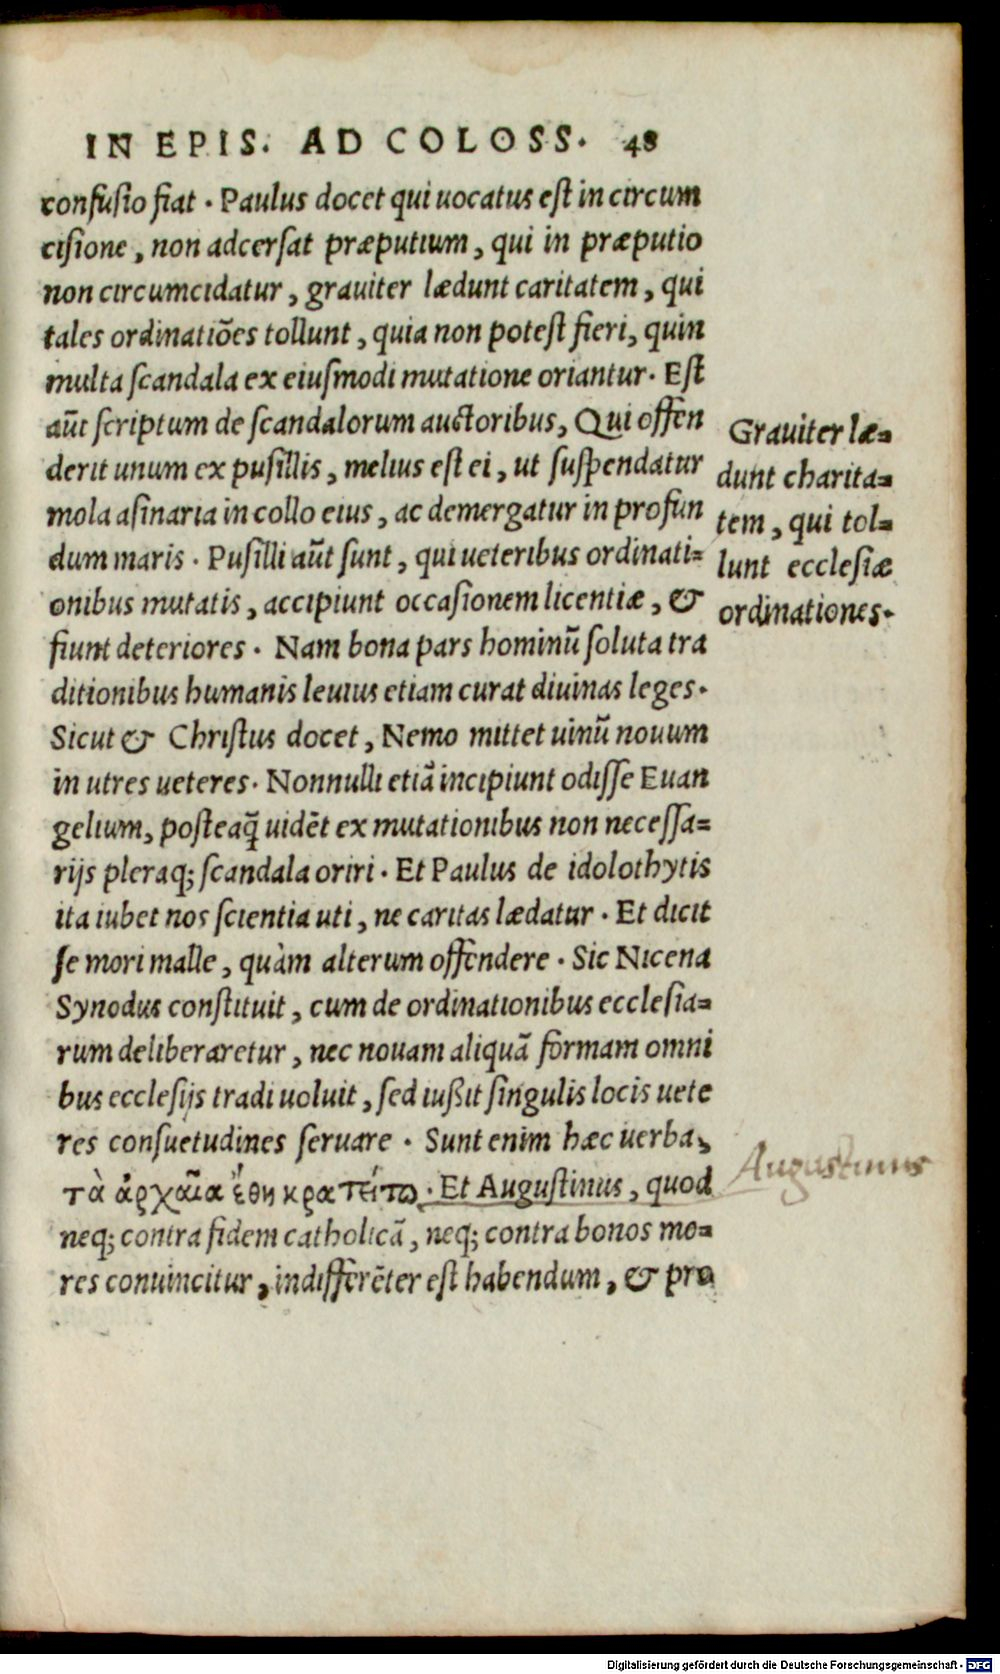 IN EPIS. AD COLOSS. 48
confusio fiat. Paulus docet qui uocatus est in circum
cisione, non adcersat præputium, qui in præputio
non circumcidatur, grauiter lædunt caritatem, qui
tales ordinatiões tollunt, quia non potest fieri, quin
multa scandala ex eiusmodi mutatione oriantur. Est
aũt scriptum de scandalorum auctoribus, Qui offen
derit unum ex pusillis, melius est ei, ut suspendatur
mola asinaria in collo eius, ac demergatur in profun
dum maris. Pusilli aũt sunt, qui ueteribus ordinati=
onibus mutatis, accipiunt occasionem licentiæ, &
fiunt deteriores. Nam bona pars hominũ soluta tra
ditionibus humanis leuius etiam curat diuinas leges.
Sicut & Christus docet, Nemo mittet uinũ nouum
in utres ueteres. Nonnulli etiã incipiunt odisse Euan
gelium, posteaq̃ uidẽt ex mutationibus non necessa=
rijs pleraq; scandala oriri. Et Paulus de idolothytis
ita iubet nos scientia uti, ne caritas lædatur. Et dicit
se mori malle, quàm alterum offendere. Sic Nicena
Synodus constituit, cum de ordinationibus ecclesia=
rum deliberaretur, nec nouam aliquã formam omni
bus ecclesijs tradi uoluit, sed iußit singulis locis uete
res consuetudines seruare. Sunt enim hæc uerba,
τὰ ἀρχαῖα ἔθη κρατείτω. Et Augustinus, quod
neq; contra fidem catholicã, neq; contra bonos mo=
res conuincitur, indifferẽter est habendum, & pro
Grauiter læ=
dunt charita=
tem, qui tol=
lunt ecclesiæ
ordinationes.
Augustinus
Digitalisierung gefördert durch die Deutsche Forschungsgemeinschaft - DFG